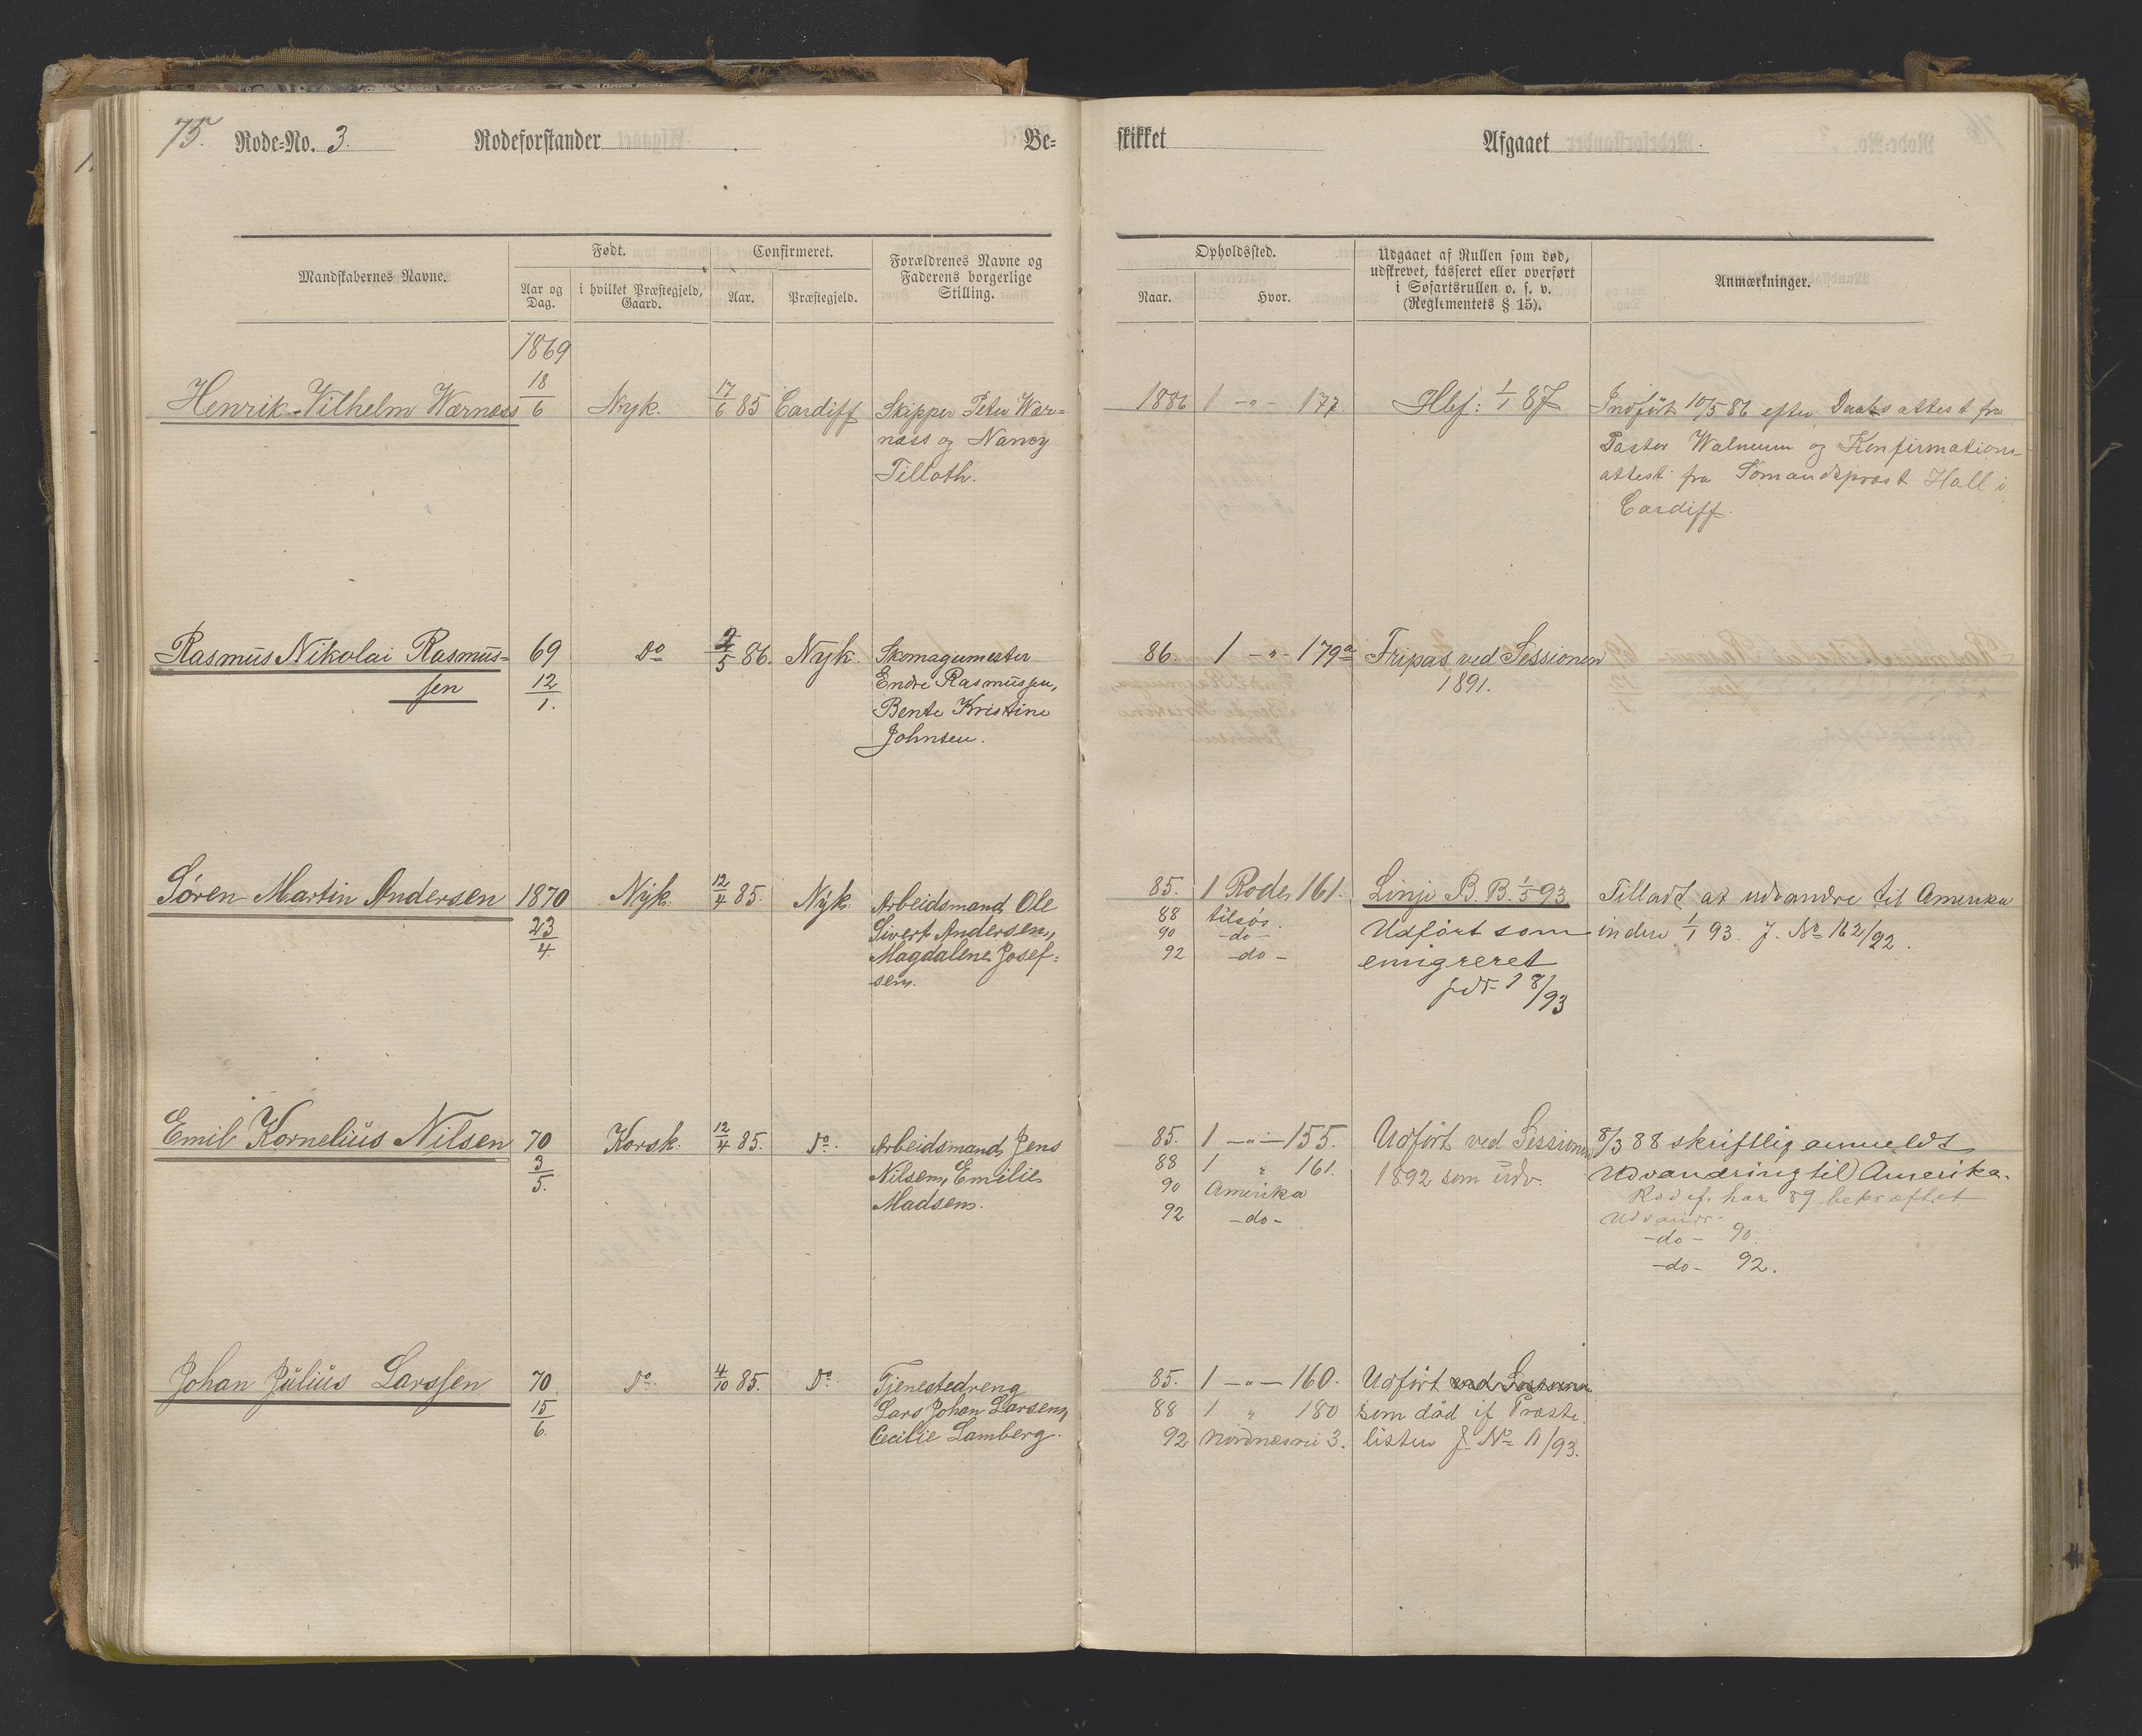 75.
Rode-No. 3.
Rodeforstander
Be-
skikket
Afgaaet
Mandskabernes Navne.
Født.
Aar og
Dag.
i hvilket Præstegjeld,
Gaard.
Confirmeret.
Aar.
Præstegjeld.
Forældrenes Navne og
Faderens borgerlige
Stilling.
Opholdssted.
Naar.
Hvor.
Udgaaet af Rullen som død,
udskrevet, kasseret eller overført
i Søfartsrullen o. s. v.
(Reglementets § 15).
Anmærkninger.
1869
Henrik Vilhelm Wærnæss 18/6 Nyk. 17/6 85 Cardiff Skipper Peter Wær=
næss og Nancy
Tilloth.
1886 1 -"- 177. Hlef: 1/1 87 Indført 10/5 86 efter Daabsattest fra
Pastor Walnum og Konfirmations
attest fra Sømandspræst Hall i
Cardiff.
Rasmus Nikolai Rasmus=
sen
69
12/1.
Do 2/5 86. Nyk. Skomagermester
Endre Rasmussen,
Bente Kristine
Johnsen.
86. 1 -"- 179a Fripas ved Sessionen
1891.
Søren Martin Andersen 1870
23/4
Nyk. 12/4 85. Nyk. Arbeidsmand Ole
Sivert Andersen,
Magdalene Josef=
sen.
85. 1 Rode 161.
88 tilsøs.
90 -do-
92 -do-
Linje B. B. 1/5 93
Udført som
emigreret
Tilladt at udvandre til Amerika
inden 1/1 93. J. No 162/92.
Emil Kornelius Nilsen 70
3/5.
Korsk. 12/4 85. Do. Arbeidsmand Jens
Nilsen, Emilie
Madsen.
85. 1 -"- 155.
88 1 " 161.
90 Amerika
92 -do-
Udført ved Sessionen
1892 som udv.
8/3 88 skriftlig anmeldt
Udvandring til Amerika.
Rodef. har 89 bekræftet
Udvandr.
-do- 90.
-do- 92.
Johan Julius Larssen 70.
15/6.
Do. 4/10 85. Do. Tjenestedreng
Lars Johan Larsen,
Cecilie Lamberg.
85. 1 -"- 160.
88 1 " 180
92 Nordnæsvei 3.
Udført ved Sessionen
som död if Præste.
listen J. No 11/93.